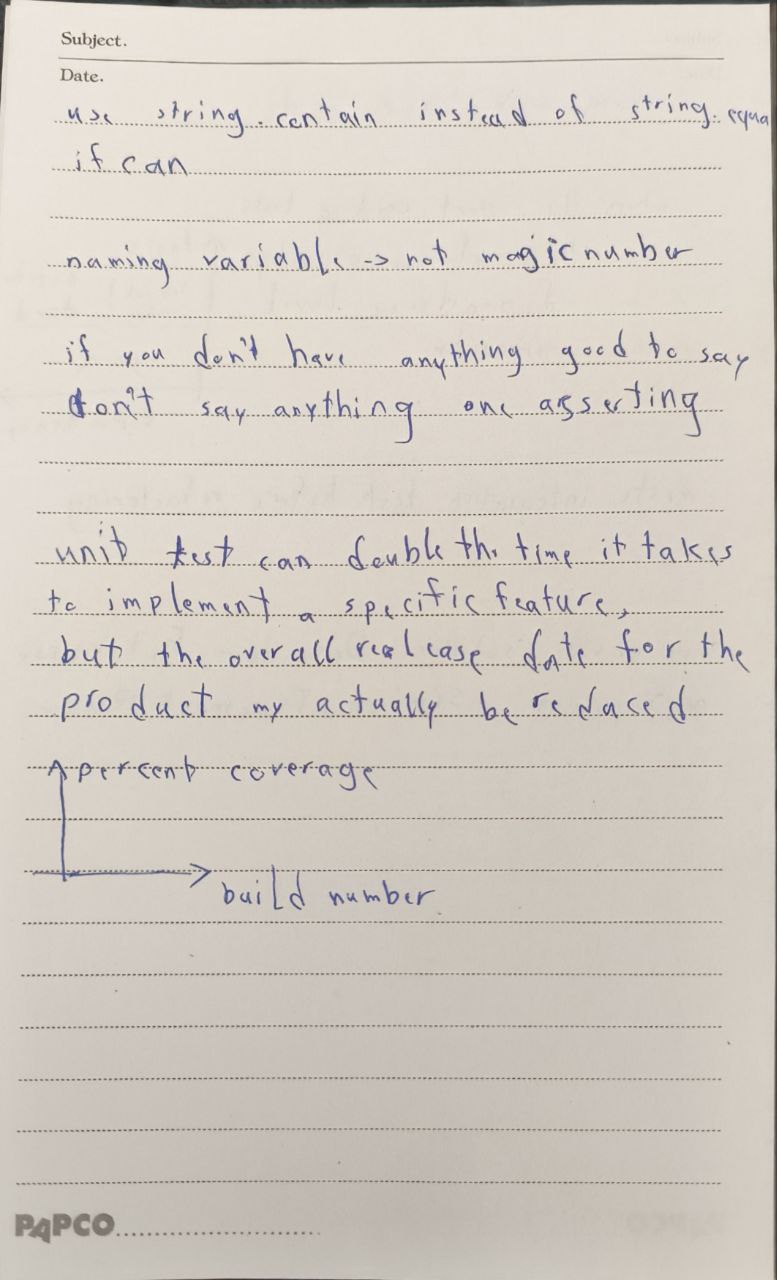 Subject.
Date.
use string.contain instead of string.equa
if can
naming variable -> not magic number
if you don't have anything good to say
don't say anything one asserting
unit test can double the time it takes
to implement a specific feature,
but the overall realease date for the
product my actually be reduced
percent coverage
build number
PAPCO